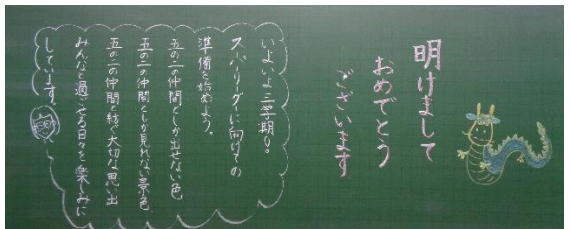 明けまして
おめでとう
ございます
いよいよ三学期。
スーパーリーグに向けての
準備を始めよう。
五の二の仲間としか出せない色
五の二の仲間としか見れない景色
五の二の仲間と紡ぐ大切な思い出
みんなと過ごせる日々を楽しみに
しています。